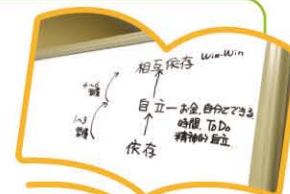 相互依存 Win-Win
自立—お金、自分でできる
時間、ToDo
精神的自立
依存